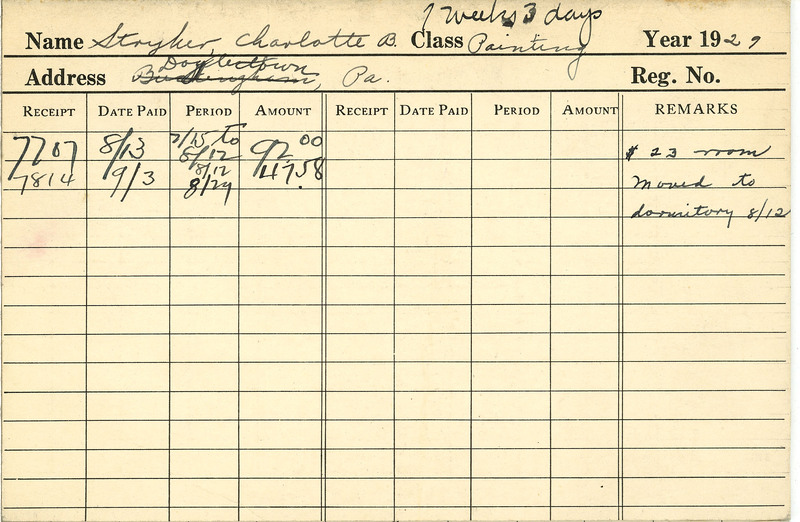 7 weeks 3 days
Name Stryker, Charlotte B. Class Painting Year 1929
Doylestown
Address Buckingham, Pa. Reg. No.
RECEIPT DATE PAID PERIOD AMOUNT RECEIPT DATE PAID PERIOD AMOUNT REMARKS
7707 8/13 7/15 to 8/12 92.00 $23 room
7814 9/3 8/12 8/29 47.58 moved to
dormitory 8/12